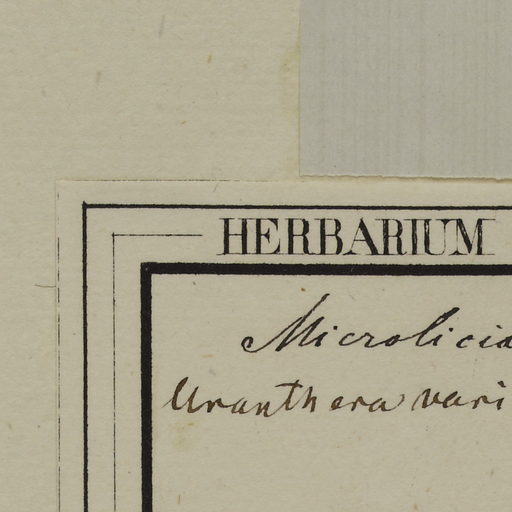 HERBARIUM
Microlicia
Uranthera vari